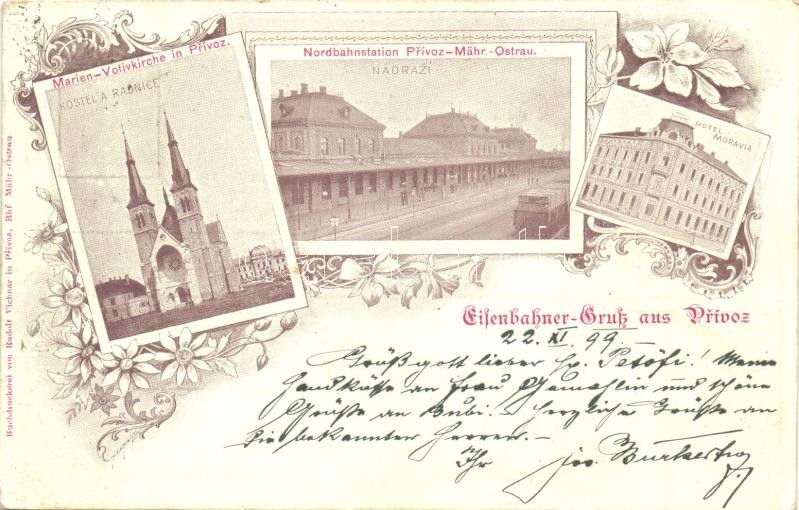 Marien-Votivkirche in Přívoz.
KOSTEL A RADNICE
Nordbahnstation Přívoz-Mähr.-Ostrau.
NÁDRAŽÍ
HOTEL
MORAVIA
Buchdruckerei von Rudolf Vichnar in Přívoz, Bhf Mähr-Ostrau
Eisenbahner-Gruß aus Přívoz
22. XI 99.-
Grüß gott lieber Hr. Petöfi! Meine
Handküsse an Frau Gemahlin und schöne
Grüße an Bubi. - Herzliche Grüße an
die bekannten Herren. -
Ihr Jos.